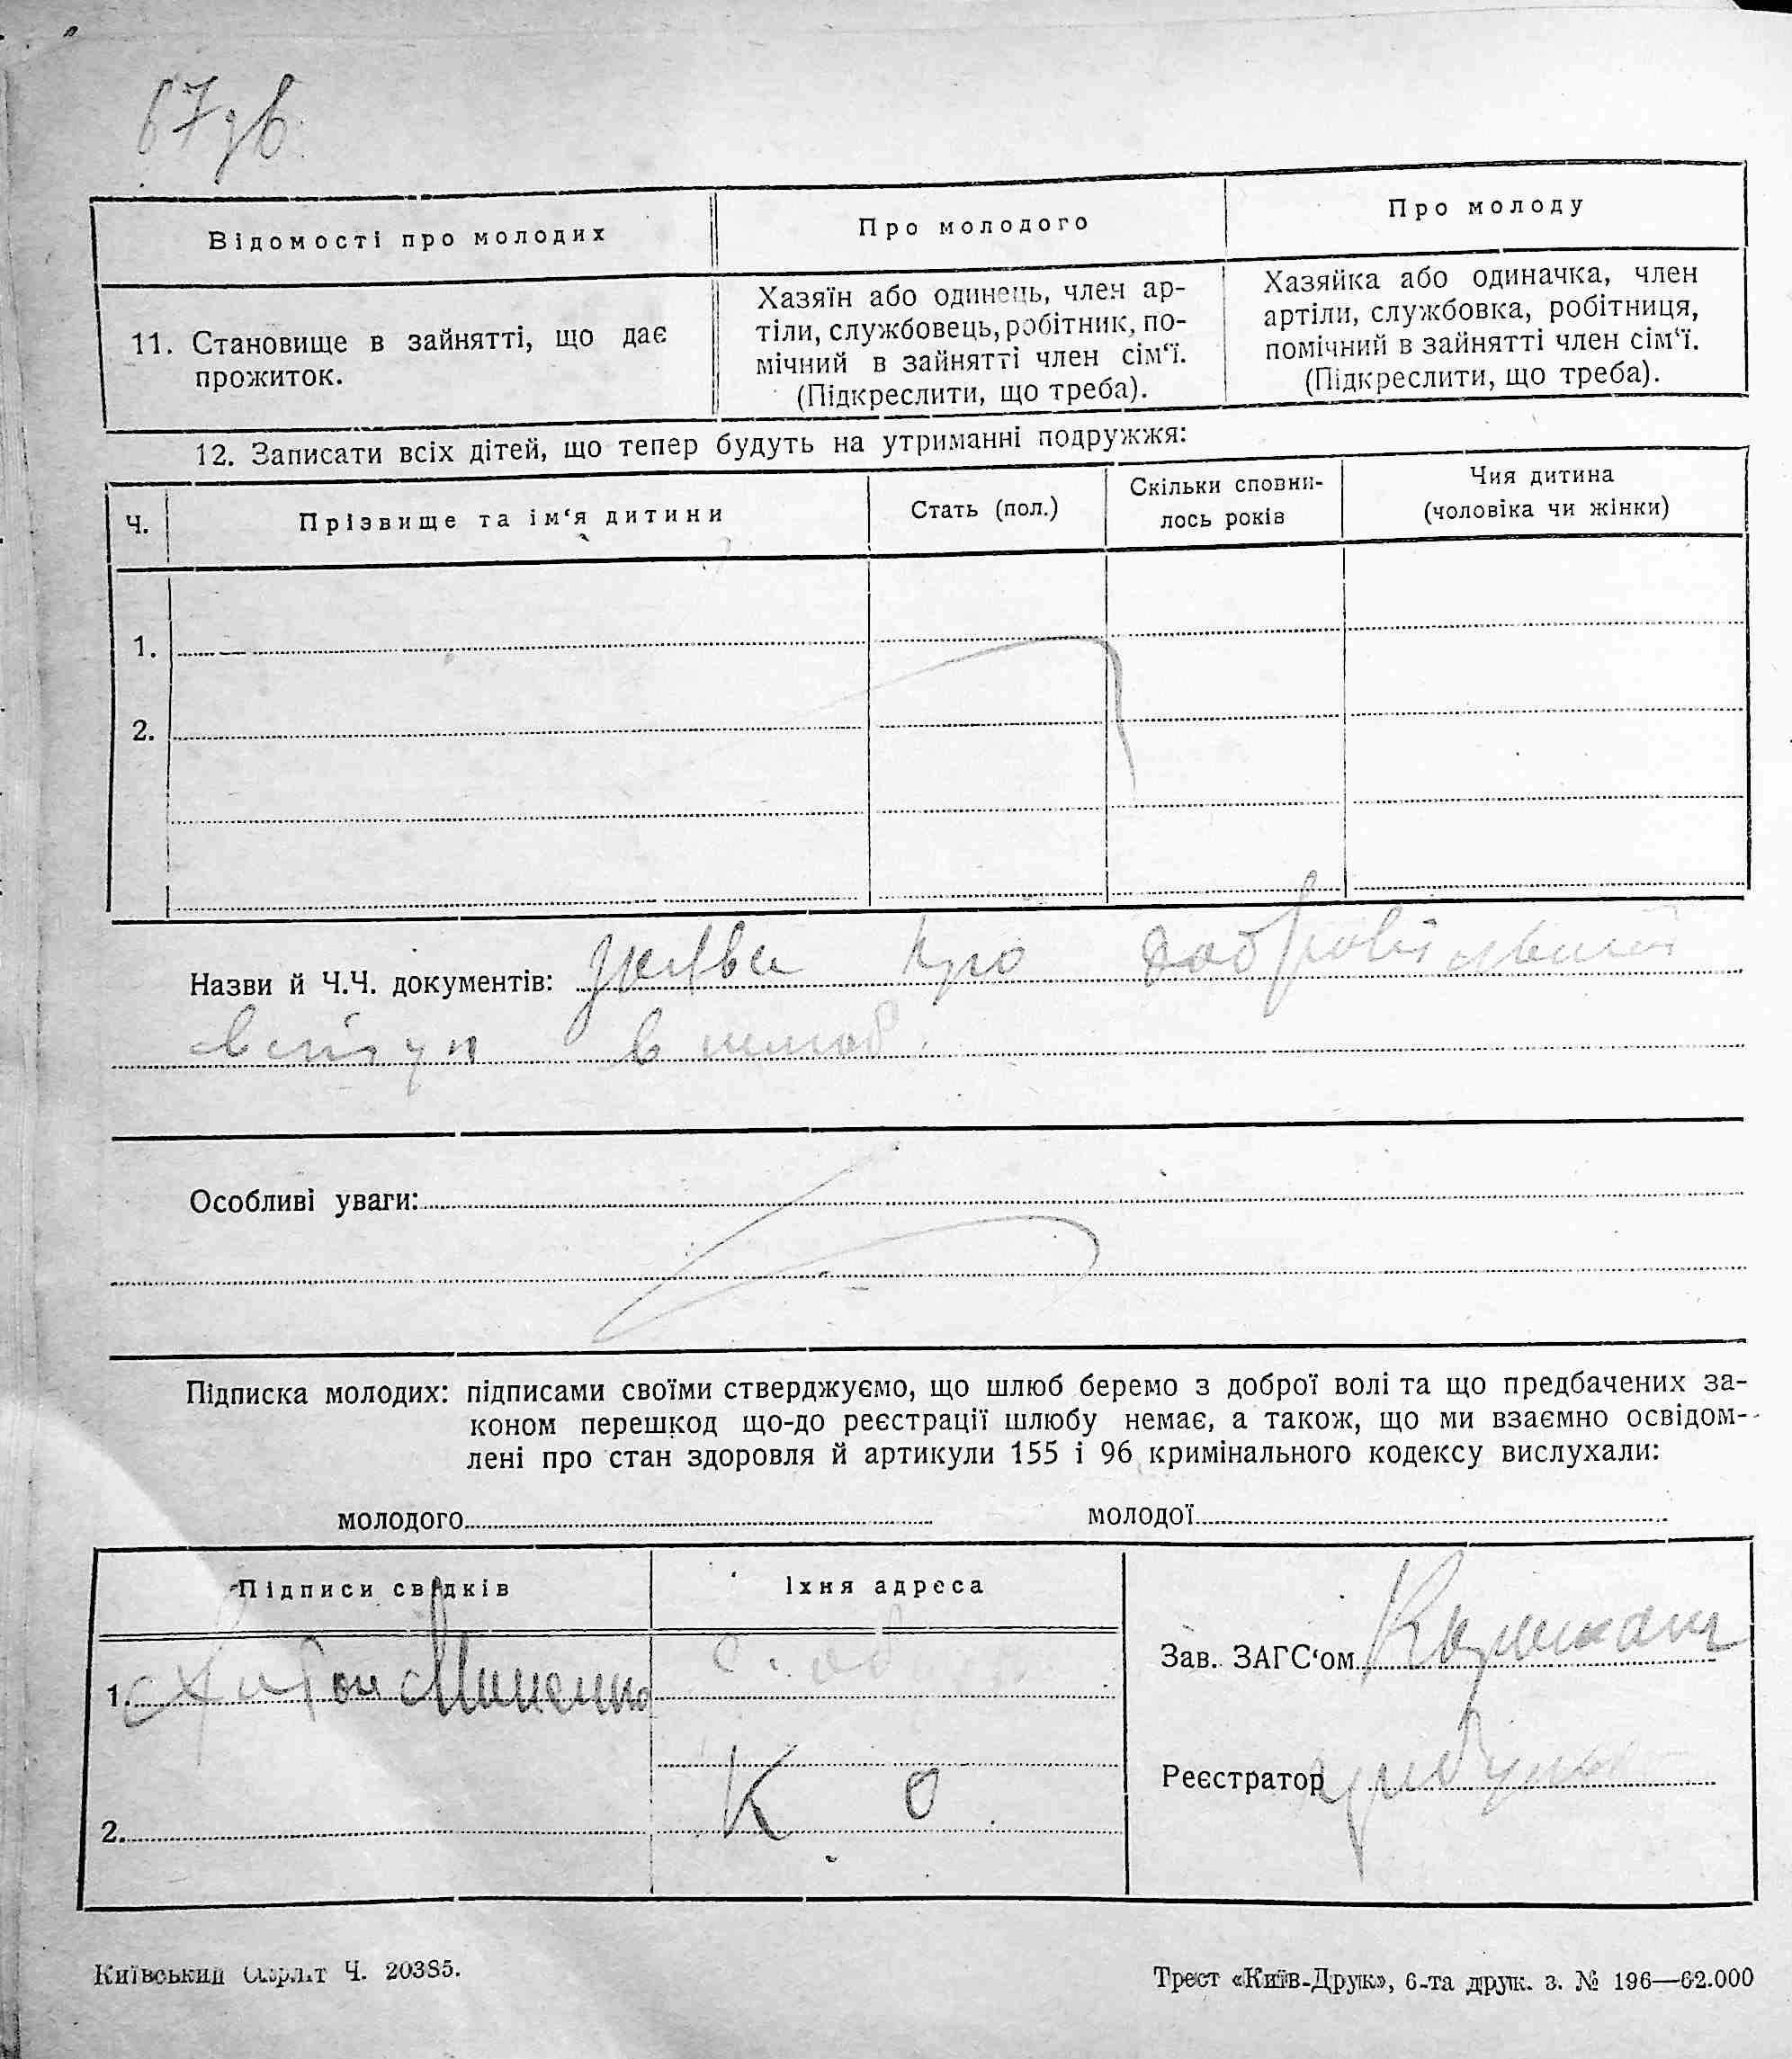 67зв.
Відомості про молодих
Про молодого
Про молоду
11. Становище в зайнятті, що дає
прожиток.
Хазяїн або одинець, член ар-
тіли, службовець, робітник, по-
мічний в зайнятті член сім‘ї.
(Підкреслити, що треба).
Хазяйка або одиначка, член
артіли, службовка, робітниця,
помічний в зайнятті член сім‘ї.
(Підкреслити, що треба).
12. Записати всіх дітей, що тепер будуть на утриманні подружжя:
Ч.
Прізвище та ім‘я дитини
Стать (пол.)
Скільки сповни-
лось років
Чия дитина
(чоловіка чи жінки)
1.
2.
Назви й Ч.Ч. документів: заява про добровільний
вступ в шлюб.
Особливі уваги:
Підписка молодих: підписами своїми стверджуємо, що шлюб беремо з доброї волі та що предбачених за-
коном перешкод що-до реєстрації шлюбу немає, а також, що ми взаємно освідом-
лені про стан здоровля й артикули 155 і 96 кримінального кодексу вислухали:
молодого
молодої
Підписи свідків
Їхня адреса
1.
2.
К О
Зав. ЗАГС‘ом
Реєстратор
Київський Ч. 20385.
Трест «Київ-Друк», 6-та друк. з. № 196—62.000